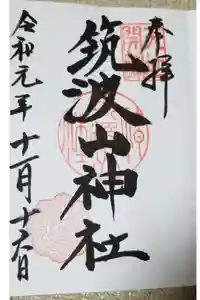 奉拝
筑波山神社
令和元年十一月十六日